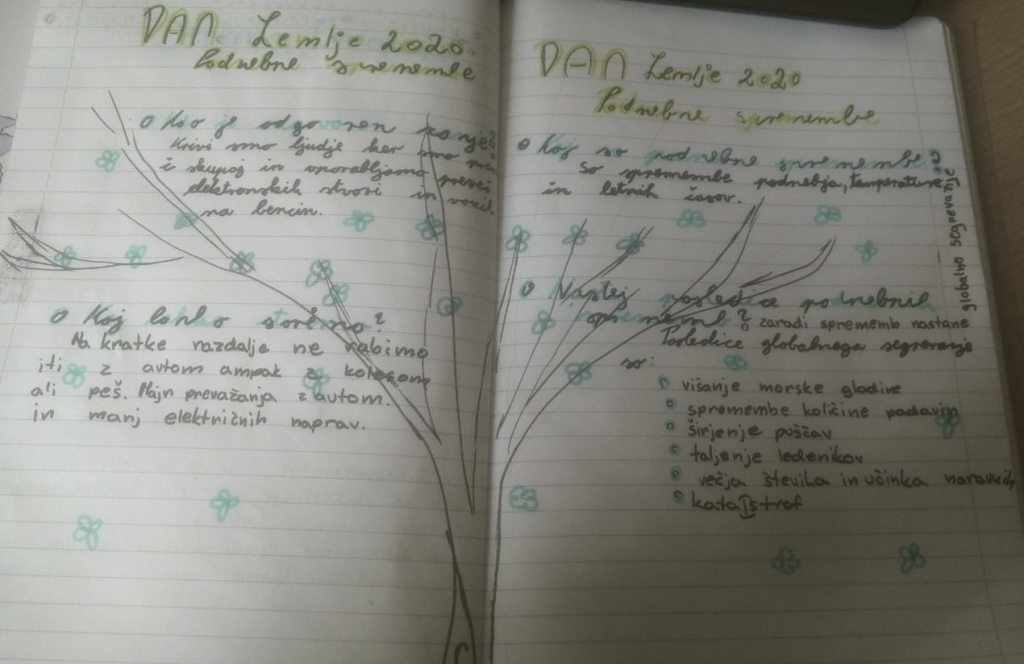 DAN Zemlje 2020
Podnebne spremembe
Kdo je odgovoren zanje?
Krivi smo ljudje ker smo
skupaj in uporabljamo preveč
elektronskih stvari in vozil
na bencin.
Kaj lahko storimo?
Na kratke razdalje ne rabimo
iti z avtom ampak z kolesom
ali peš. Majn prevažanja z avtom.
in manj električnih naprav.
DAN Zemlje 2020
Podnebne spremembe
Kaj so podnebne spremembe?
So spremembe podnebja, temperature
in letnih časov.
globalno segrevanje
Naštej posledice podnebnih
sprememb? zaradi sprememb nastane
Posledice globalnega segrevanja
so:
višanje morske gladine
spremembe količine padavin
širjenje puščav
taljenje ledenikov
večja števila in učinka naravnih
katastrof